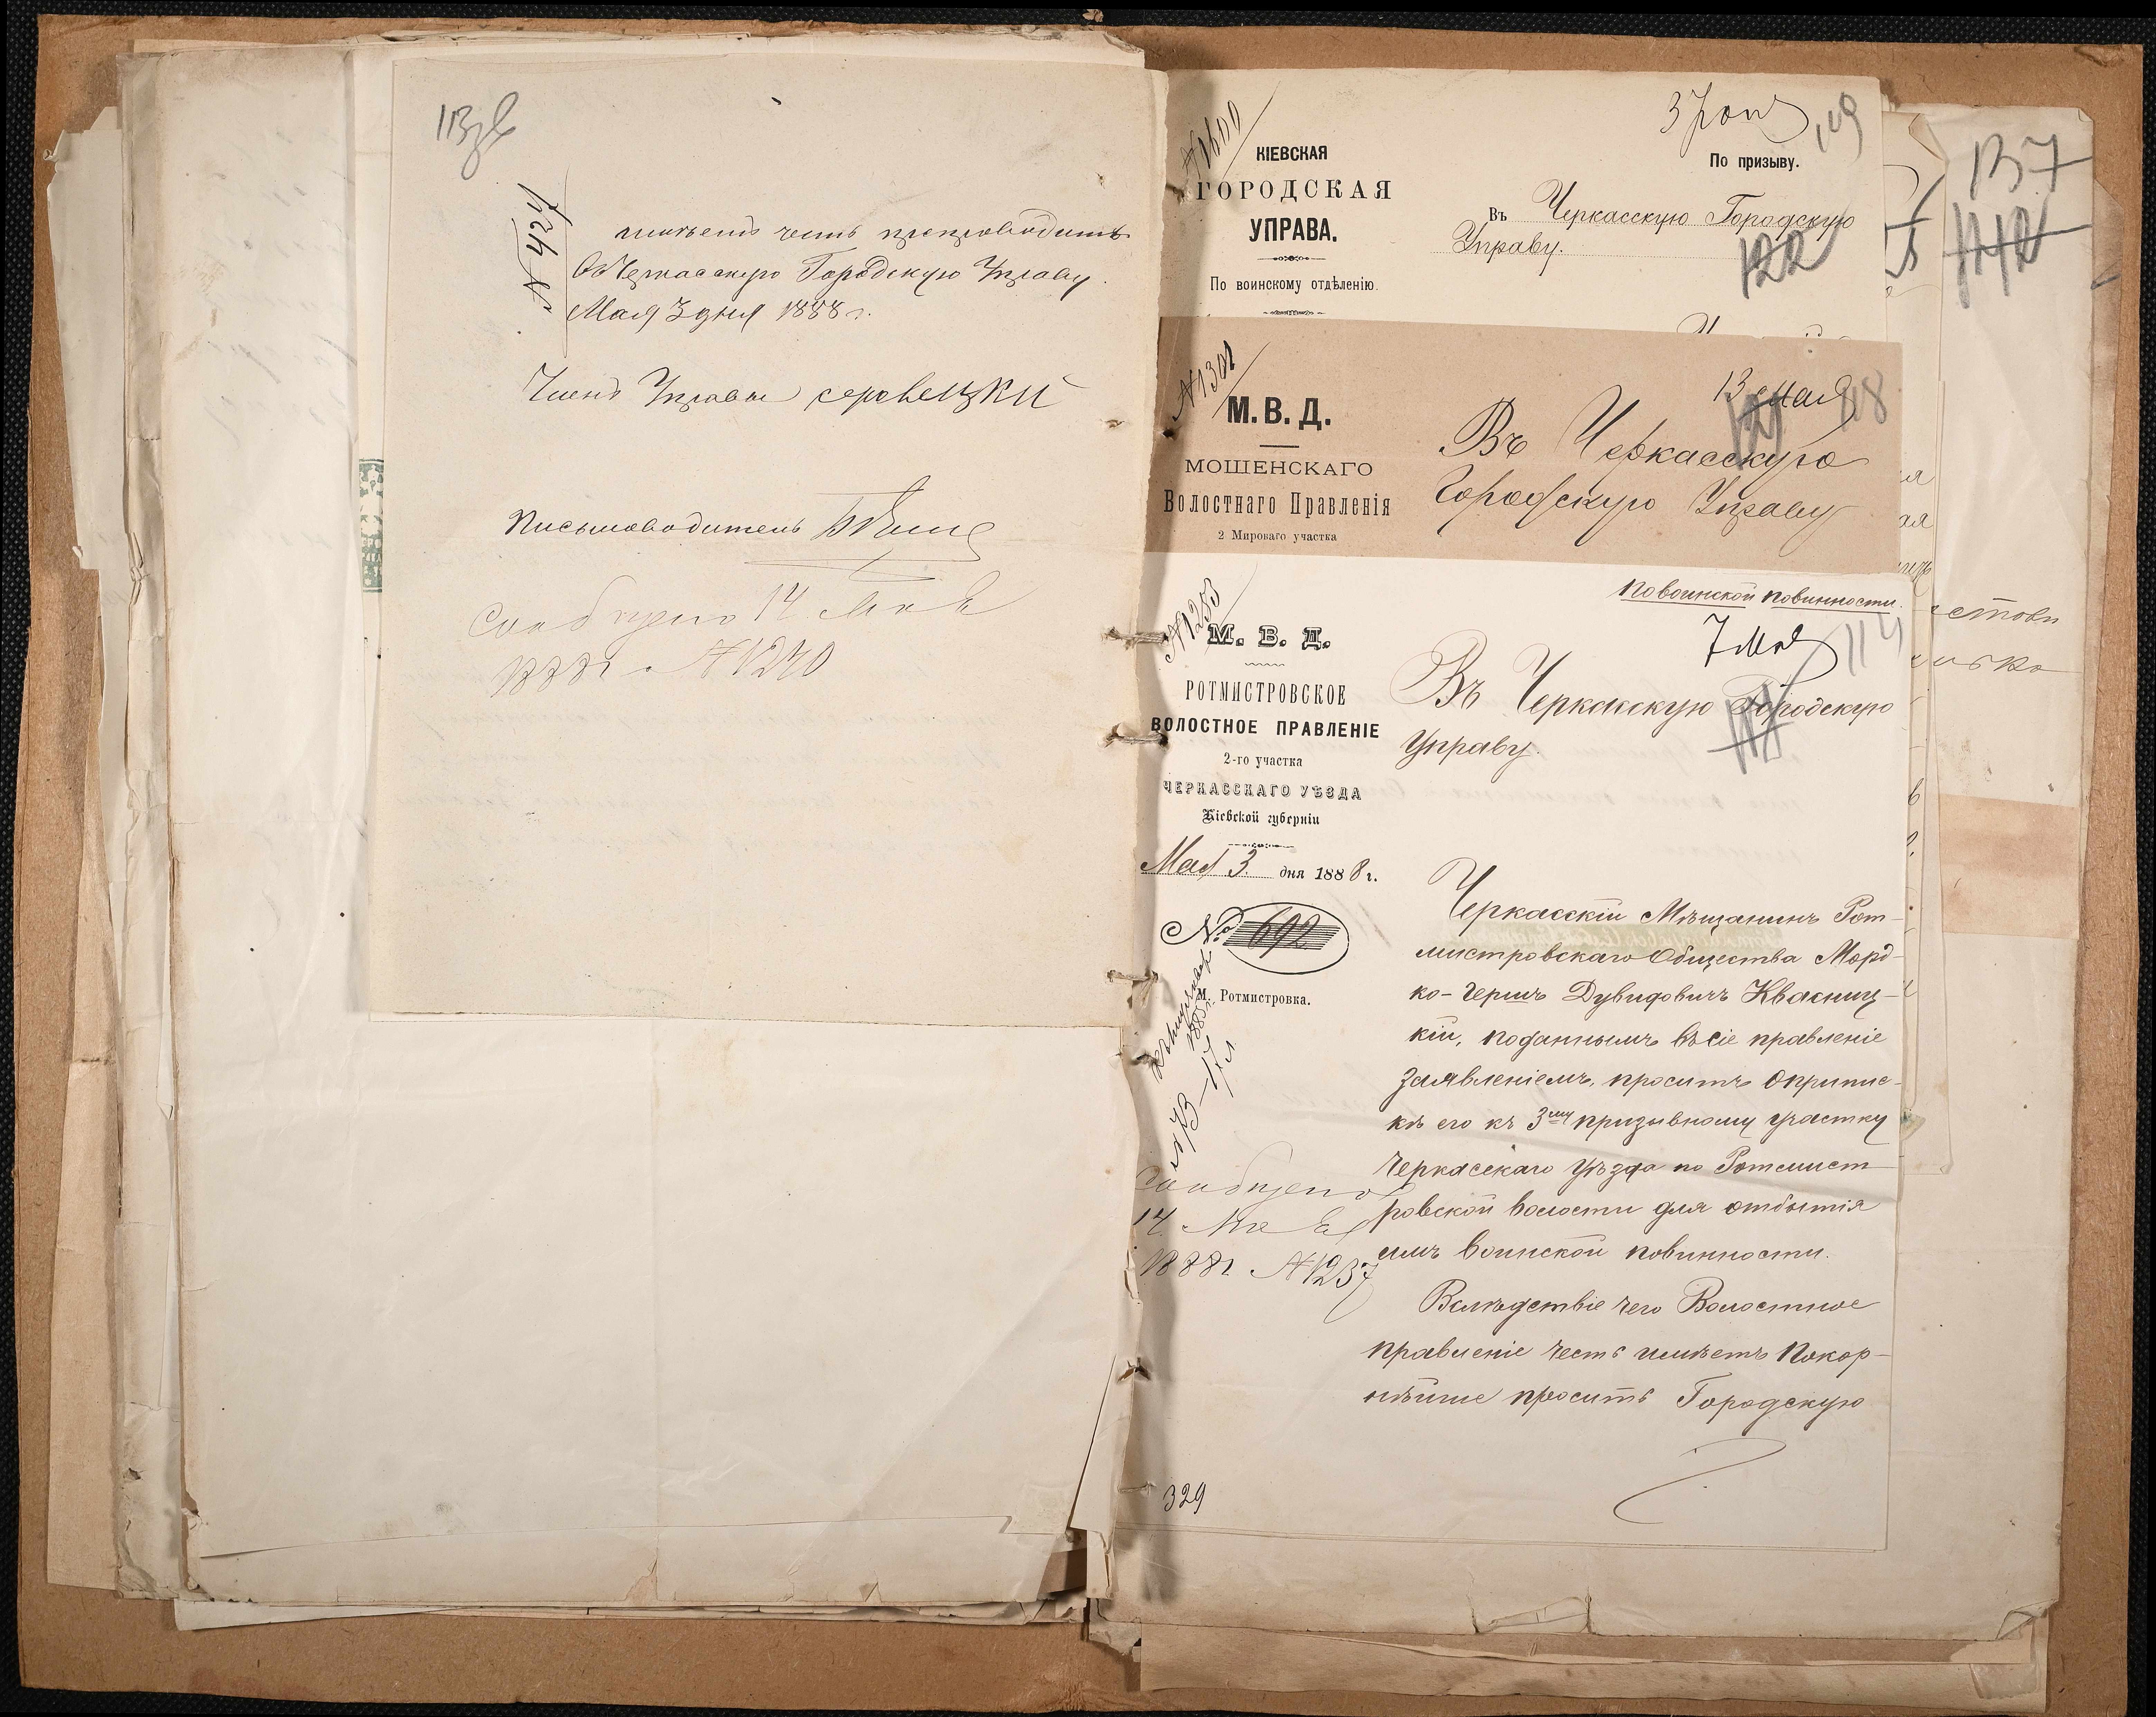 113 об
№ 424
имѣетъ честь препроводить
въ Черкасскую Городскую Управу.
Мая 3 дня 1888 г.
Членъ Управы
Письмоводитель
Сообщено 14 Мая
1888 г. № 1240
№ 1600
КІЕВСКАЯ
ГОРОДСКАЯ
УПРАВА.
По воинскому отдѣленію.
3 Іюня
119
По призыву.
Въ Черкасскую Городскую
Управу.
122
№ 1301
М. В. Д.
МОШЕНСКАГО
Волостнаго Правленія
2 Мироваго участка
13 Мая
118
121
Въ Черкасскую
Городскую Управу
№ 1253
М. В. Д.
РОТМИСТРОВСКОЕ
ВОЛОСТНОЕ ПРАВЛЕНІЕ
2-го участка
ЧЕРКАССКАГО УѢЗДА
Кіевской губерніи
Мая 3 дня 1888 г.
№ 692
М. Ротмистровка.
1885 г.
№ 73-17
Сообщено
14 Мая
1888 г. № 1237
По воинской повинности.
7 Мая
114
Въ Черкасскую Городскую
Управу.
Черкасскій Мѣщанинъ Рот-
мистровскаго Общества Морд-
ко-Гершъ Дувидовичъ Квасниц-
кій, поданнымъ въ сіе правленіе
заявленіемъ, проситъ о припис-
кѣ его къ 3му призывному участку
Черкасскаго Уѣзда по Ротмист-
ровской волости для отбытія
имъ воинской повинности.
Вслѣдствіе чего Волостное
правленіе честь имѣетъ покор-
нѣйше просить Городскую
329
137
142